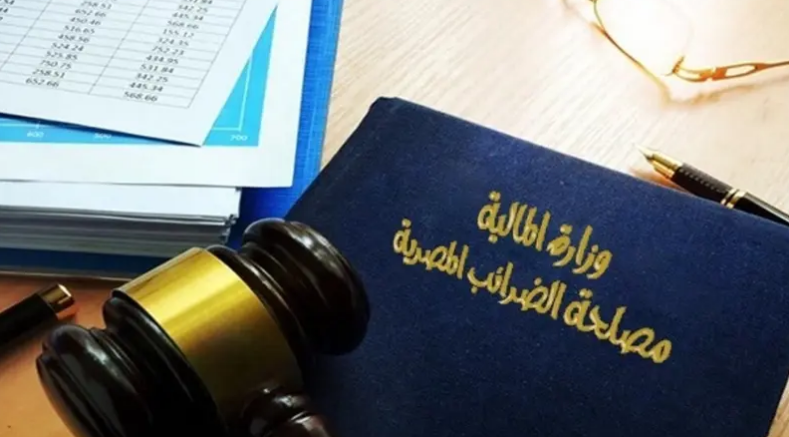 258.51
652.66
450.46
516.65
458.56
524.24
525.85
750.75
258.51
652.66
342.25
445.34
568.66
155.12
324.35
752.23
434.95
531.84
342.25
445.34
568.66
600
700
وزارة المالية
مصلحة الضرائب المصرية